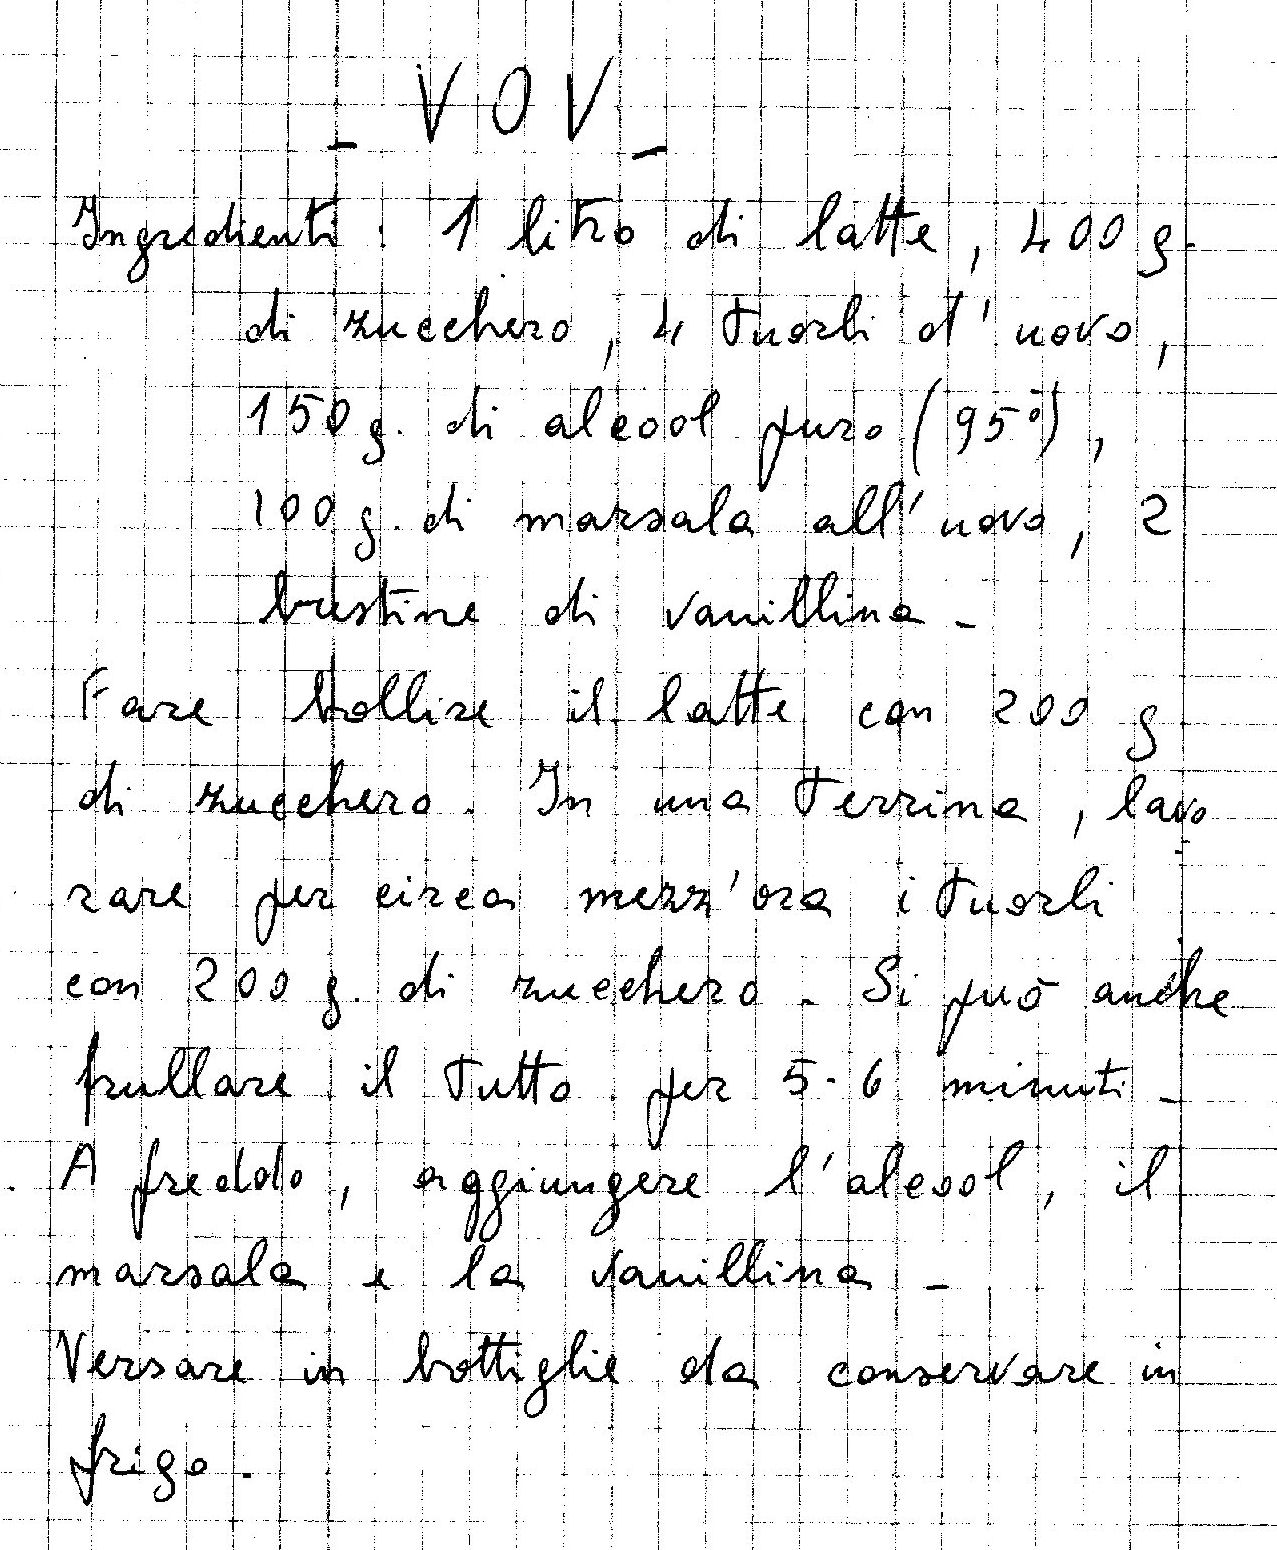 - VOV -
Ingredienti: 1 litro di latte, 400 g.
di zucchero, 4 tuorli d'uovo,
150 g. di alcool puro (95°),
100 g. di marsala all'uovo, 2
bustine di vanillina -
Fare bollire il latte con 200 g
di zucchero. In una terrina, lavo
rare per circa mezz'ora i tuorli
con 200 g. di zucchero. Si può anche
frullare il tutto per 5-6 minuti -
A freddo, aggiungere l'alcool, il
marsala e la vanillina -
Versare in bottiglie da conservare in
frigo.